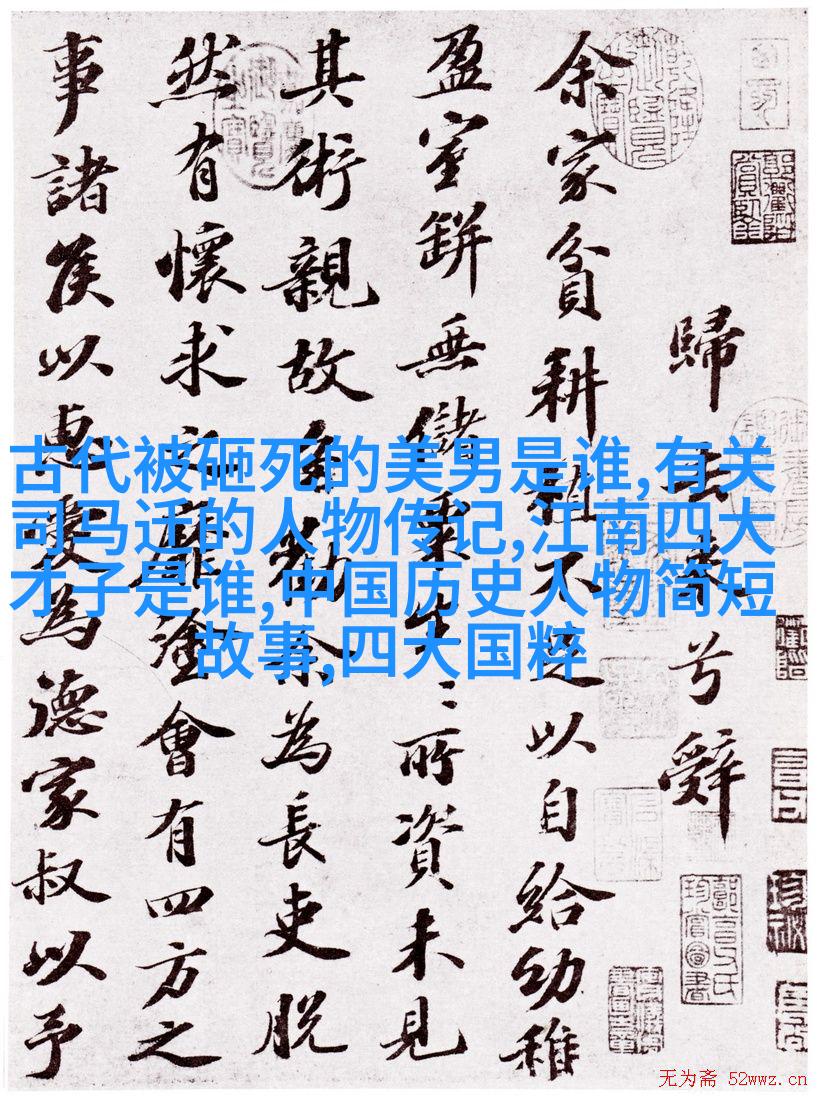 歸去來兮辭
余家貧耕植不足以自給幼稚
盈室缾無儲粟生〻所資未見
其術親故多勸余為長吏脫
然有懷求之靡塗會有四方之
事諸侯以惠愛為德家叔以予
古代被砸死的美男是谁,有关
司马迁的人物传记,江南四大
才子是谁,中国历史人物简短
故事,四大国粹
无为斋 52wwz.cn